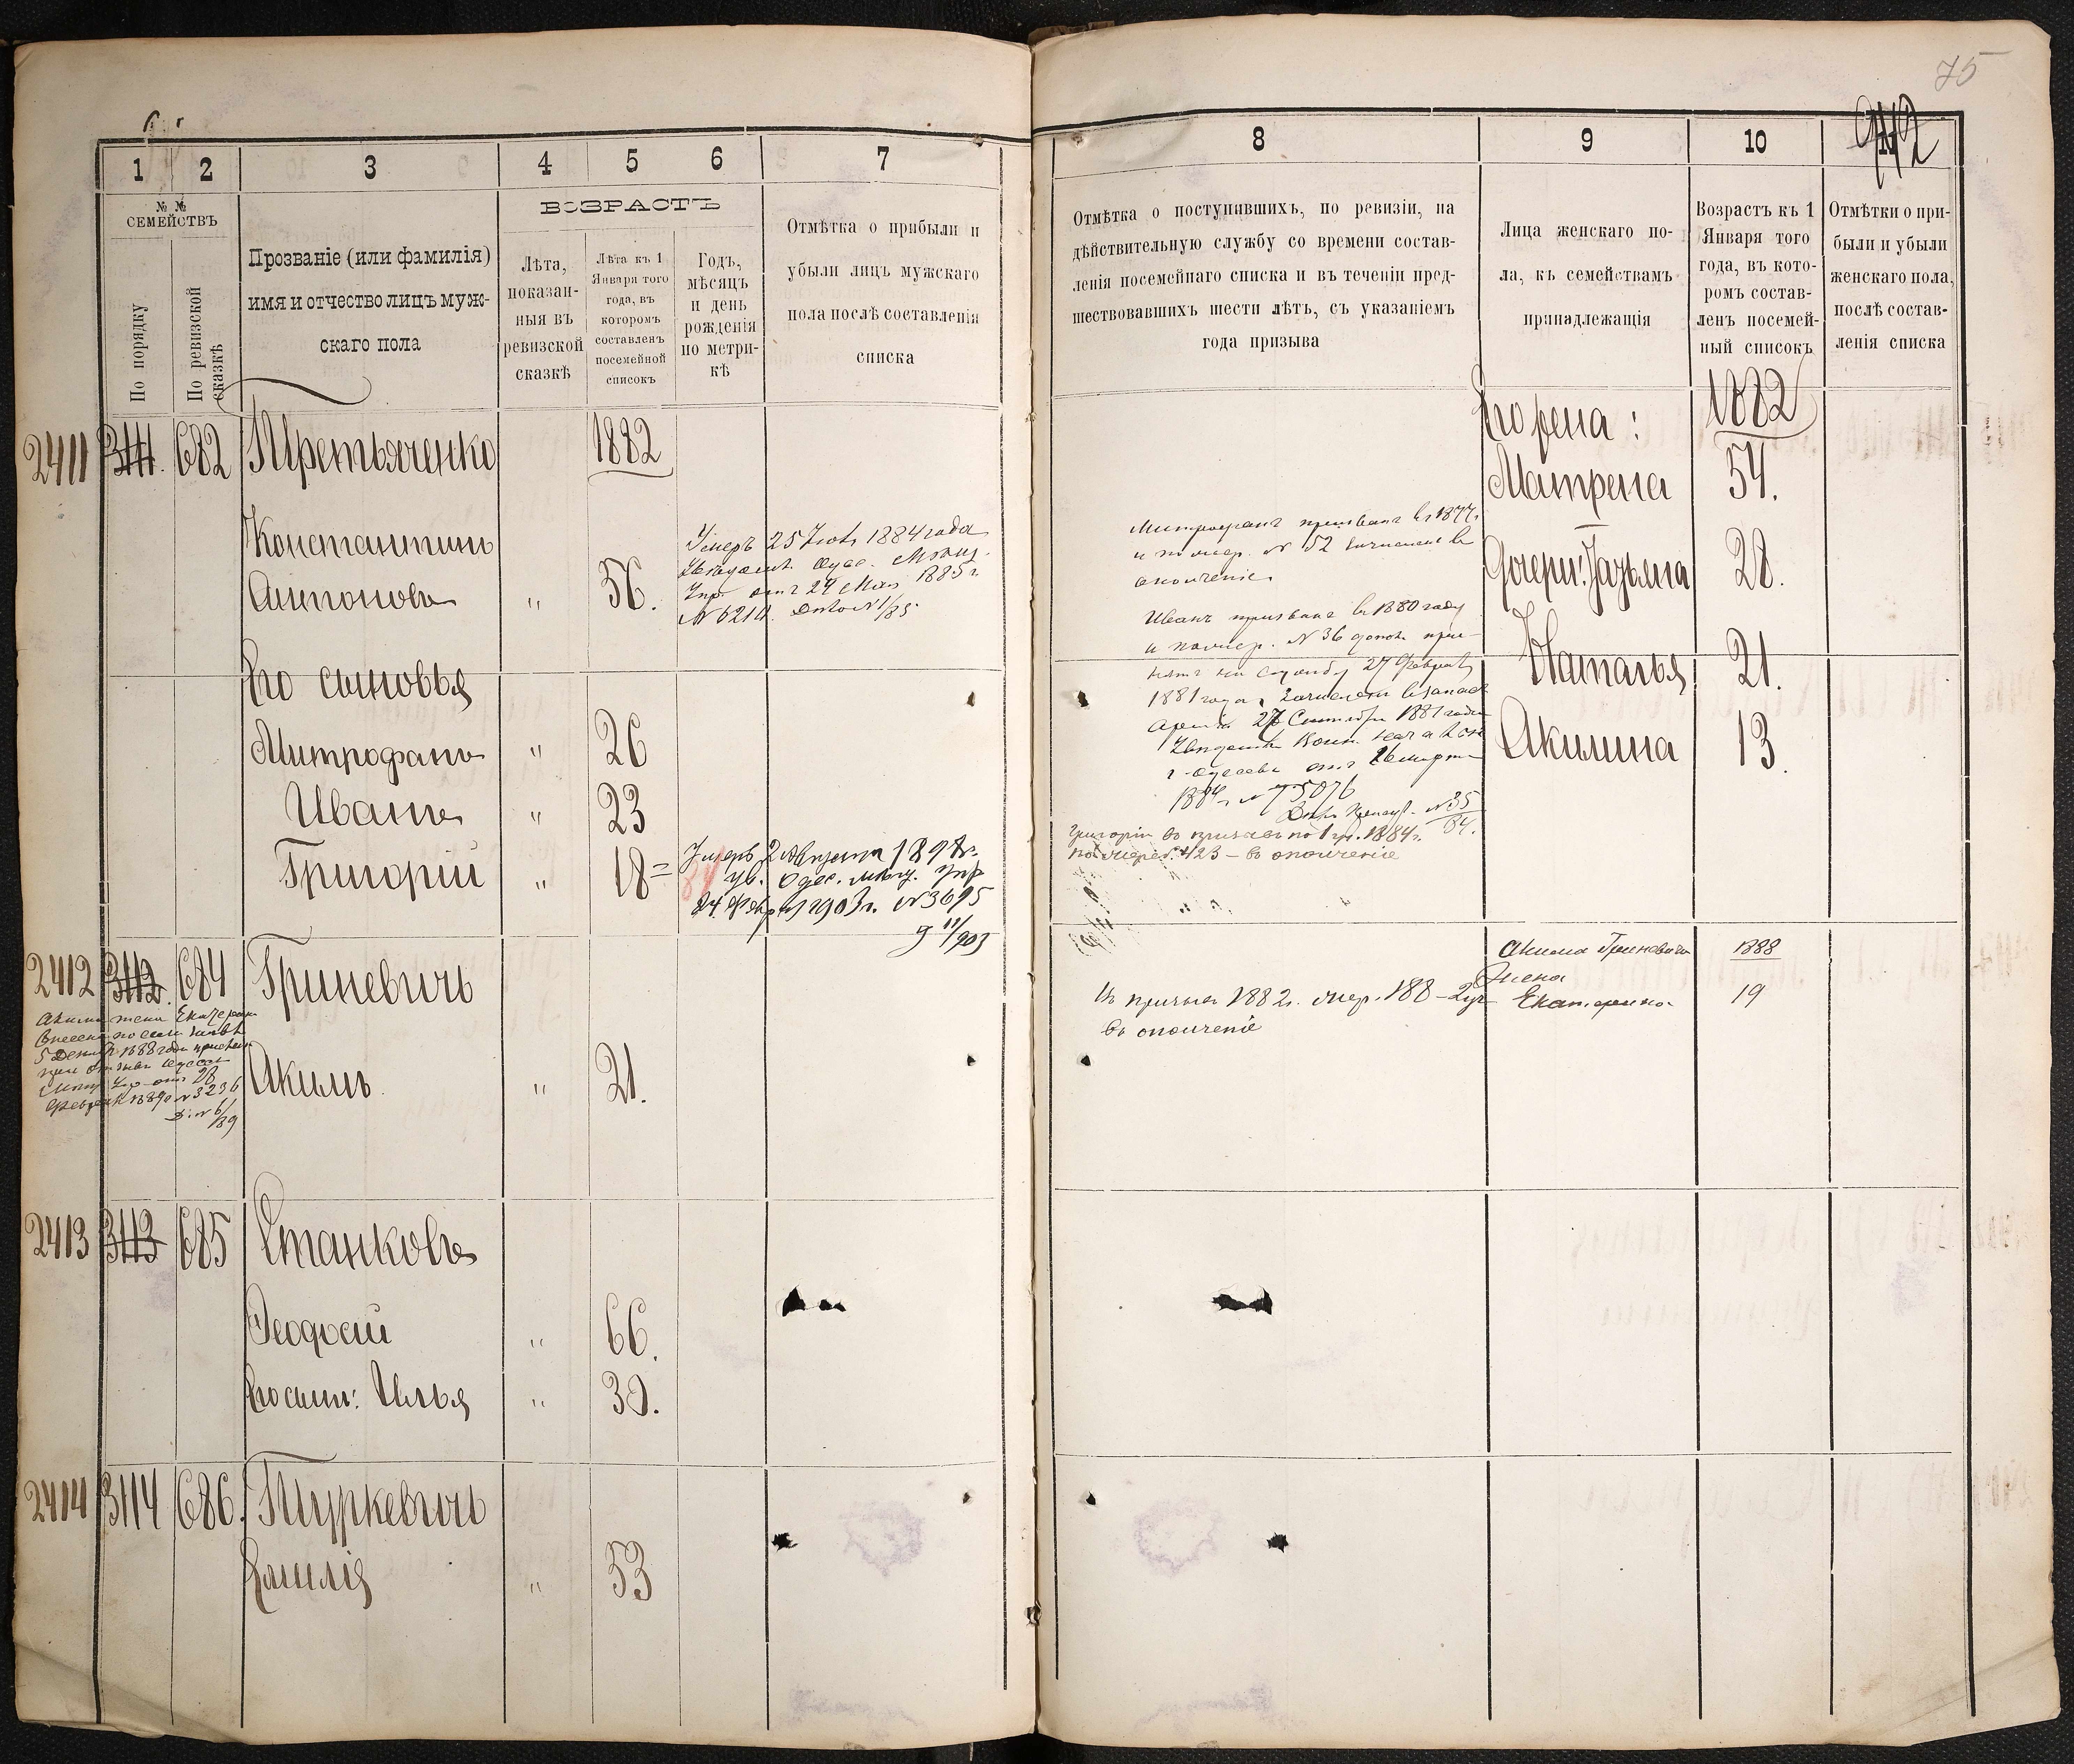 75
942
1
2
3
4
5
6
7
№ №
СЕМЕЙСТВЪ
По порядку
По ревизской сказкѣ
Прозваніе (или фамилія)
имя и отчество лицъ муж-
скаго пола
ВОЗРАСТЪ
Лѣта,
показан-
ныя въ
ревизской
сказкѣ
Лѣта къ 1
Января того
года, въ
которомъ
составленъ
посемейной
списокъ
Годъ,
мѣсяцъ
и день
рожденія
по метри-
кѣ
Отмѣтка о прибыли и
убыли лицъ мужскаго
пола послѣ составленія
списка
2411 3111. 682 Третьяченко 1882
Константинъ
Антоновъ " 56.
Умеръ 25 1884 года
отъ 24 Мая 1885 г.
№ 6214. №1/85
Его сыновья
Митрофанъ " 26
Иванъ " 23
Григорій " 18
Умеръ 2 Августа 189
ув. Одес. мѣщ. упр
24 февр 1903 г. № 3695
11/903
2412 3112. 684 Гриневичъ
Акима жена Екатерина
5 1888 года
отъ 28
Февраля 1889 № 3236
Д. № 6/89
Акимъ " 21.
2413 3113 685 Станковъ
Феодосій " 66.
Его сынъ: Илья " 30.
2414 3114 686. Туркевичъ
" 53
8
9
10
11
Отмѣтка о поступившихъ, по ревизіи, на
дѣйствительную службу со времени состав-
ленія посемейнаго списка и въ теченіи пред-
шествовавшихъ шести лѣтъ, съ указаніемъ
года призыва
Лица женскаго по-
ла, къ семействамъ
принадлежащія
Возрастъ къ 1
Января того
года, въ кото-
ромъ состав-
ленъ посемей-
ный списокъ
Отмѣтки о при-
были и убыли
женскаго пола,
послѣ состав-
ленія списка
Его жена: 1882
Матрена 54.
Митрофанъ призванъ въ 1877 г.
и по жер. № 52 зачисленъ въ
ополченіе
Дочери: 28.
Иванъ призванъ въ 1880 году
и по жер. № 36 при-
нятъ на службу 27 Февраля
1881 года, зачисленъ въ запасъ
арміи 27 Сентября 1881 года
отъ 16 марта
1884 г. № 5076
№ 35/84.
Наталья 21.
Акилина 13.
Григорій въ призывъ по 1 уч. 1884 г.
по жереб. 423 – въ ополченіе
Акима Гриневича 1888
жена
Екатерина 19
Въ призывъ 1882 г. жер. 188 – 2 уч
въ ополченіе